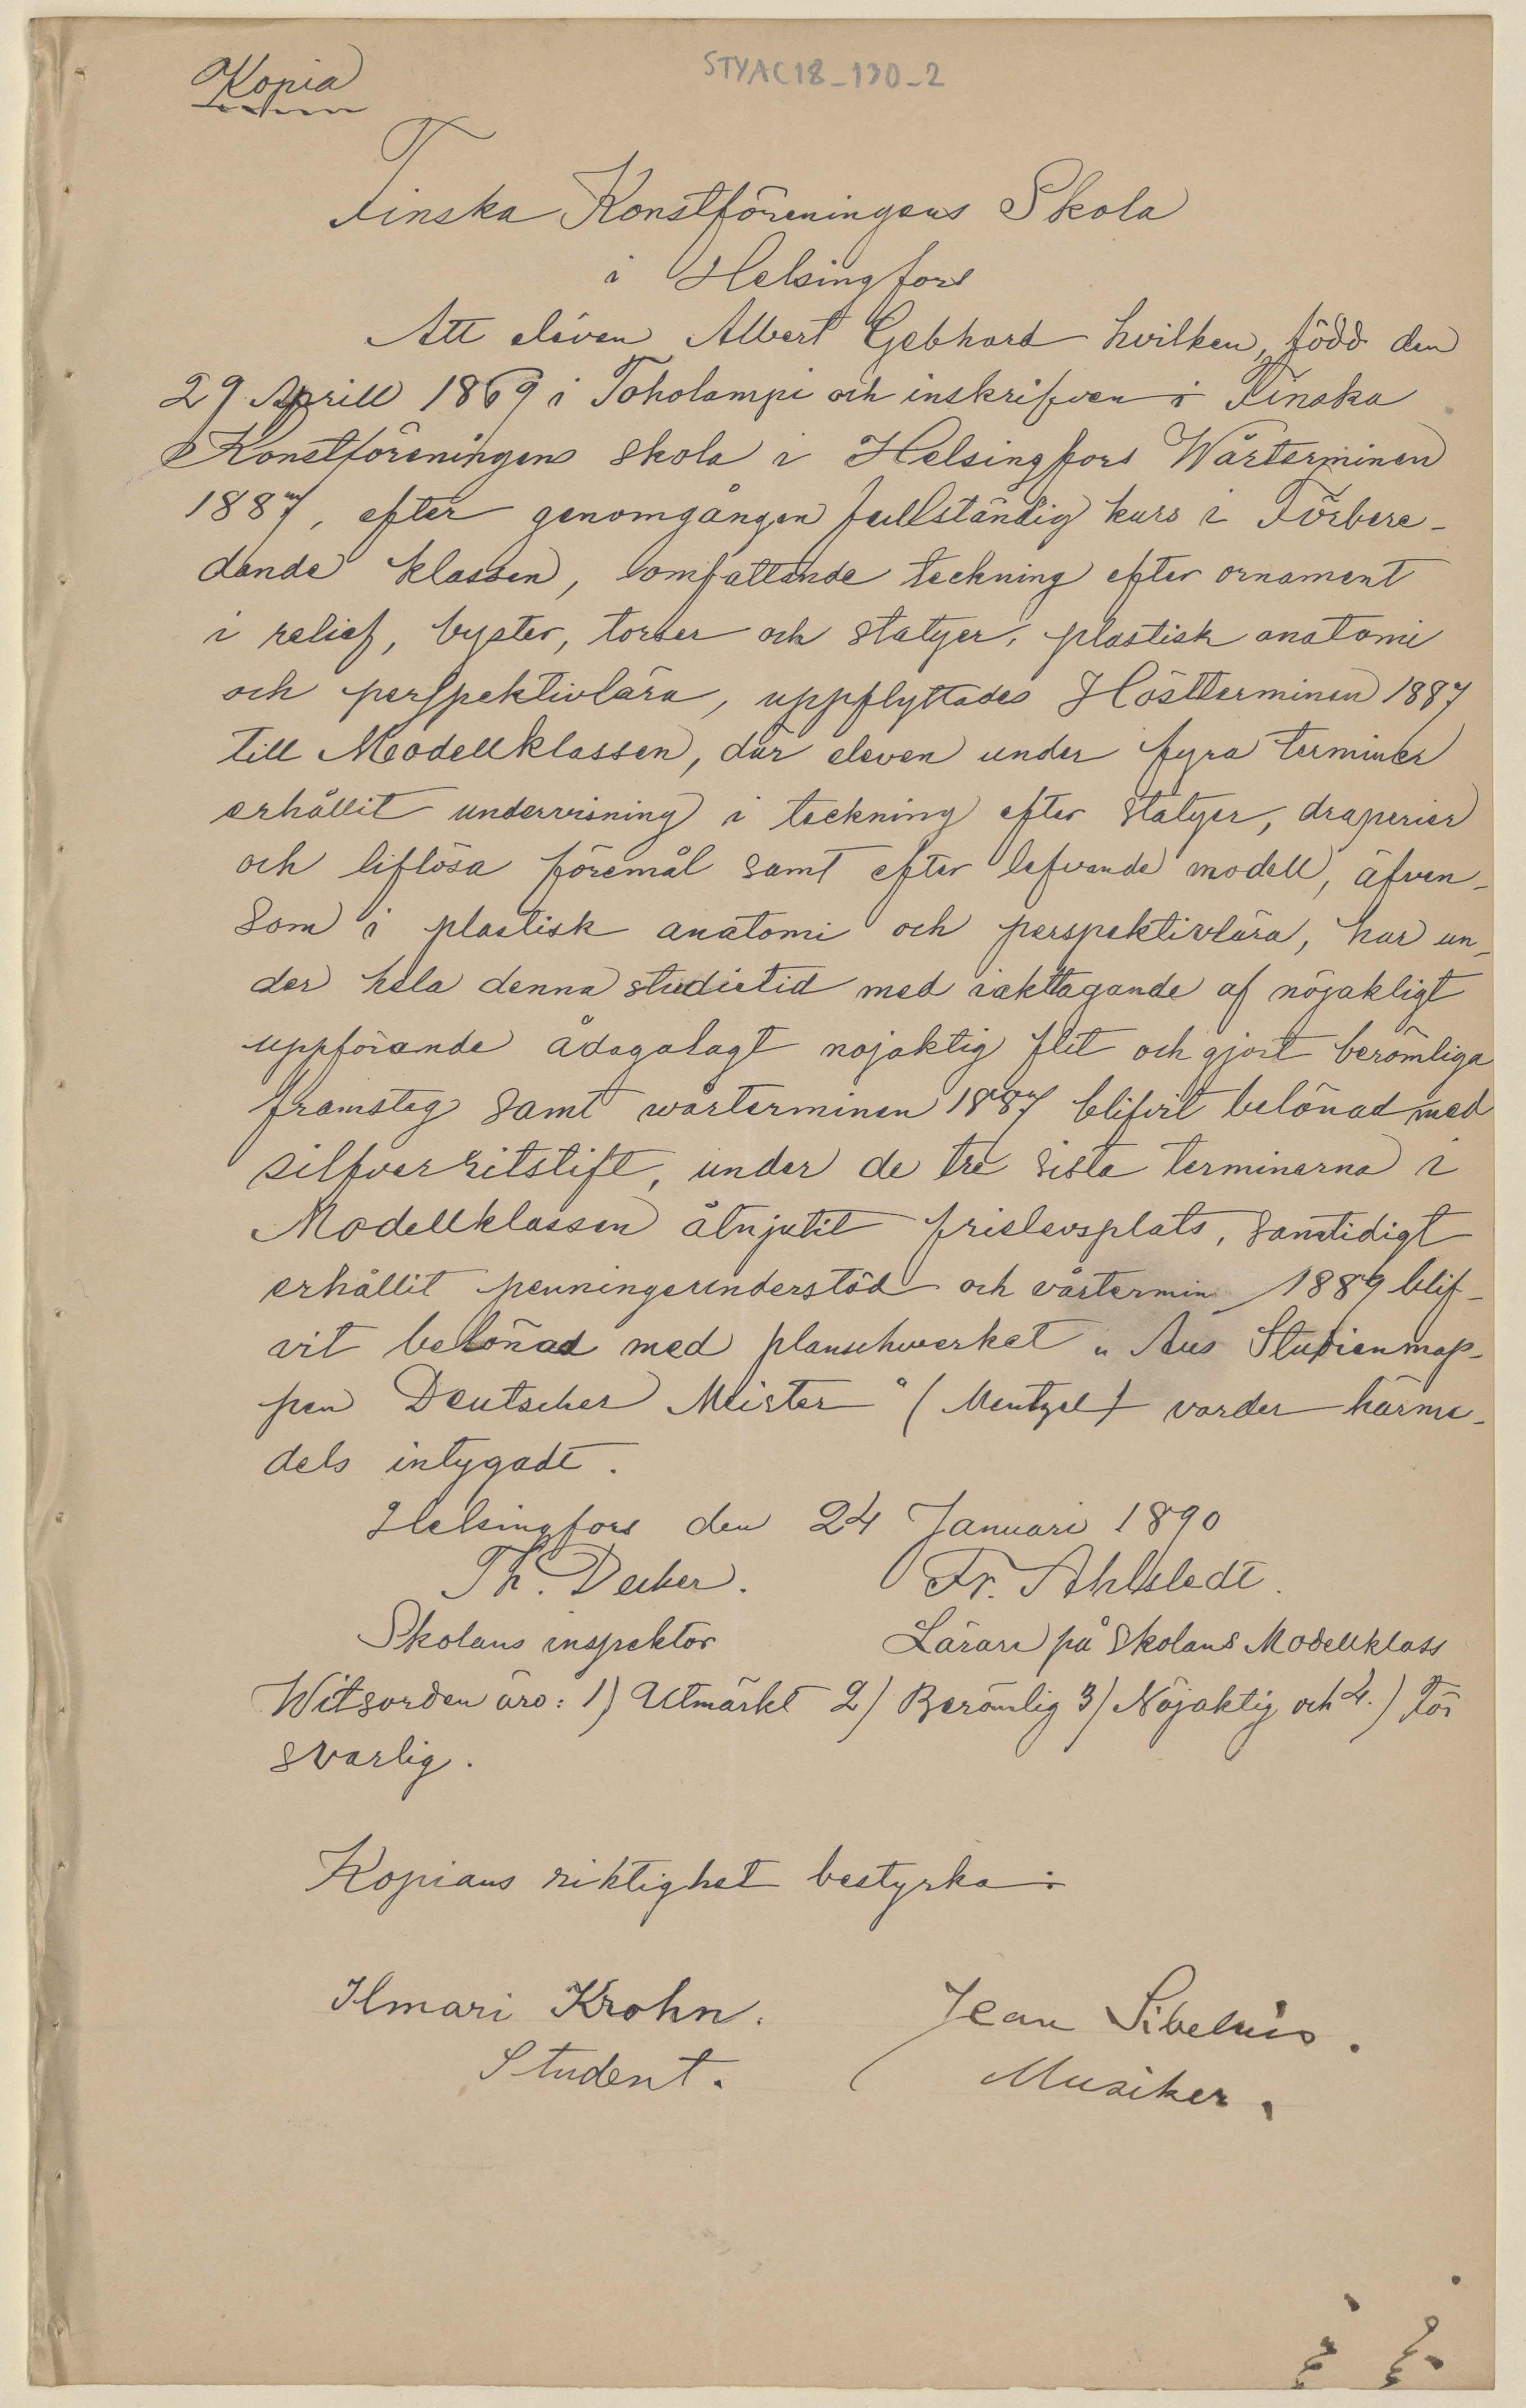 Kopia
STYAC18_130_2
Finska Konstföreningens Skola
i Helsingfors
Att eleven Albert Gebhard hvilken, född den
29 Aprill 1869 i Toholampi och inskrifven i Finska
Konstföreningens skola i Helsingfors Wårterminen
1887, efter genomgången fullständig kurs i Förbere-
dande klassen, omfattande teckning efter ornament
i relief, byster, torser och statyer, plastisk anatomi
och perspektivlära, uppflyttades Höstterminen 1887
till Modellklassen, där eleven under fyra terminer
erhållit undervisning i teckning efter statyer, draperier
och liflösa föremål samt efter lefvande modell, äfven-
som i plastisk anatomi och perspektivlära, har un-
der hela denna studietid med iakttagande af nöjakligt
uppförande ådagalagt nöjaktig flit och gjort berömliga
framsteg samt wårterminen 1887 blifvit belönad med
silfverritstift, under de tre sista terminerna i
Modellklassen åtnjutit frielevsplats, samtidigt
erhållit penningeunderstöd och vårtermin 1889 blif-
vit belönad med planschverket „Aus Studienmap-
pen Deutscher Meister" (Mentzel) varder härme-
dels intygadt.
Helsingfors den 24 Januari 1890
Th. Decker. Fr. Ahlstedt.
Skolans inspektor Lärare på skolans Modellklass
Witsorden äro: 1) Utmärkt 2) Berömlig 3) Nöjaktig och 4.) För
svarlig.
Kopians riktighet bestyrka:
Ilmari Krohn. Jean Sibelius.
Student. Musiker.